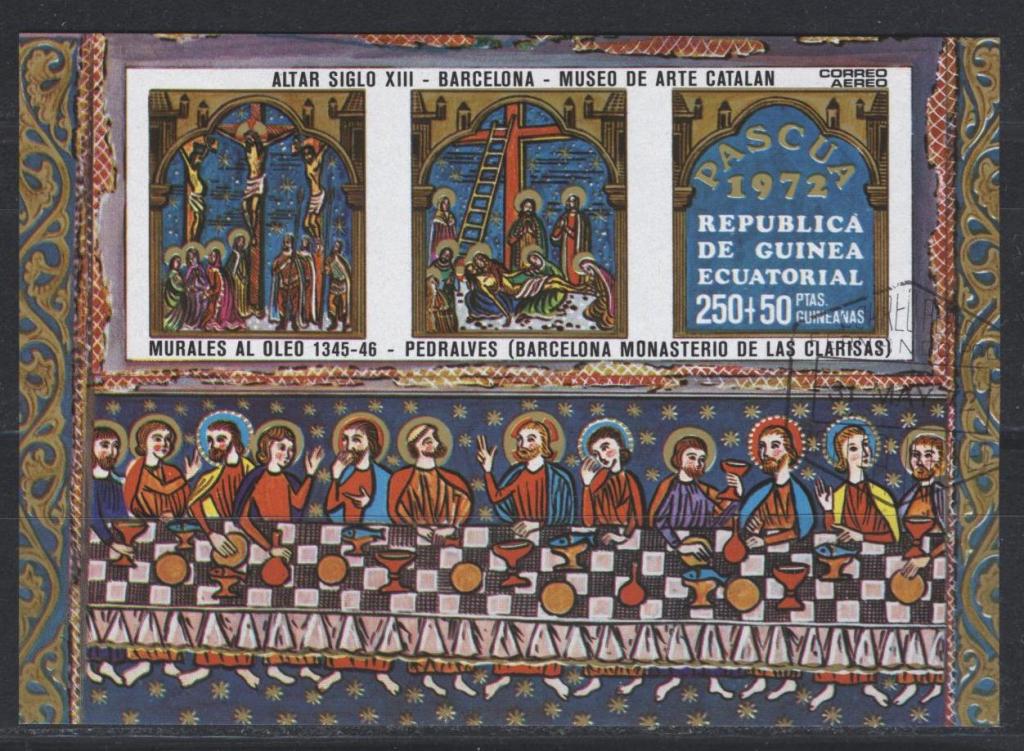 ALTAR SIGLO XIII - BARCELONA - MUSEO DE ARTE CATALAN
CORREO
AEREO
PASCUA
1972
REPUBLICA
DE GUINEA
ECUATORIAL
250+50 PTAS.
GUINEANAS
MURALES AL OLEO 1345-46 - PEDRALVES (BARCELONA MONASTERIO DE LAS CLARISAS)
31 MAY